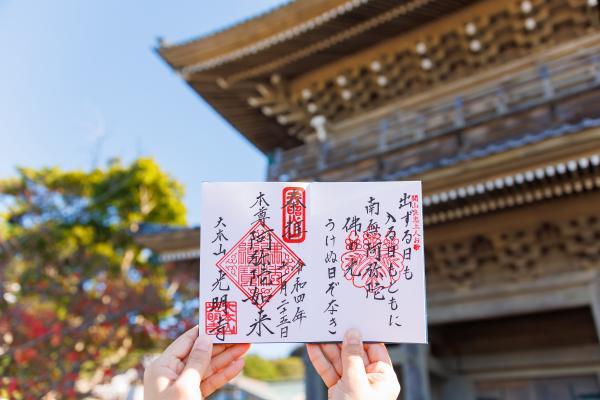 出ずる日も
入る日もともに
南無阿弥陀
佛の光
うけぬ日ぞなき
奉拝
令和四年
月二十五日
本尊 阿弥陀如来
大本山 光明寺